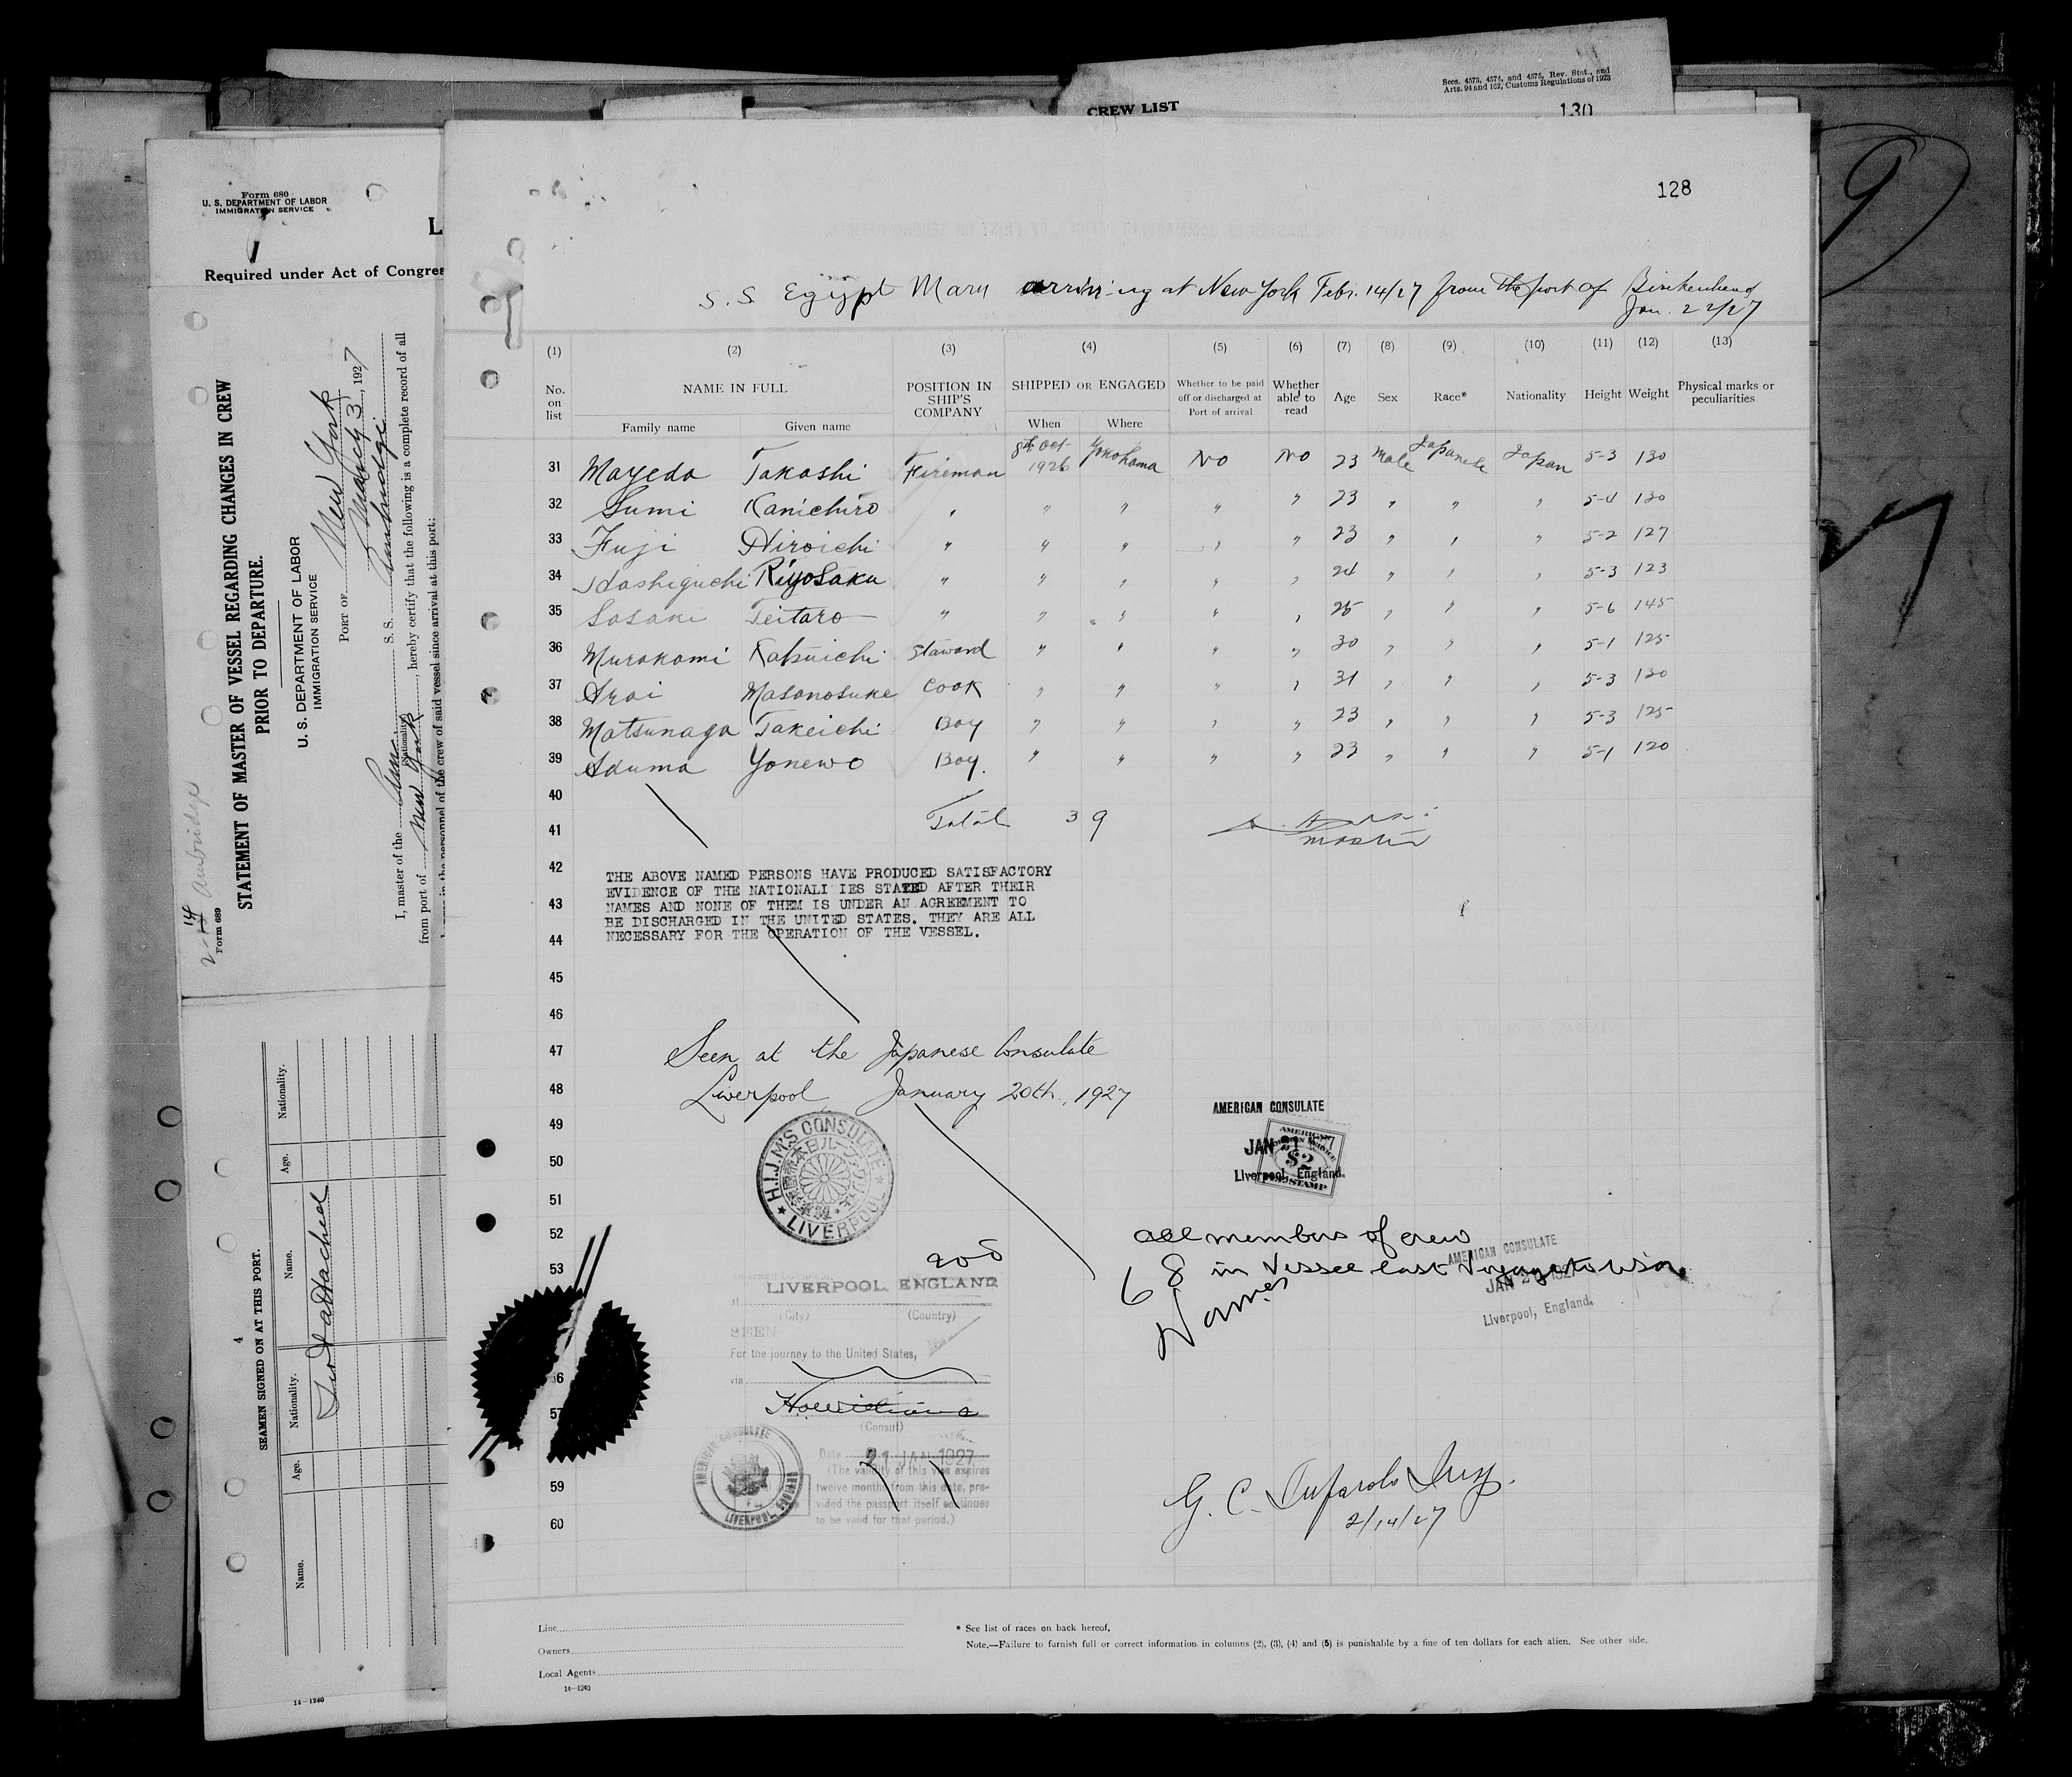 Secs. 4573, 4574, and 4575, Rev. Stat., and
Arts. 94 and 102, Customs Regulations of 1923
CREW LIST
130
9
Form 680
U. S. DEPARTMENT OF LABOR
IMMIGRATION SERVICE
L
Required under Act of Congres
2-14 Ambridge
Form 689
STATEMENT OF MASTER OF VESSEL REGARDING CHANGES IN CREW
PRIOR TO DEPARTURE.
U. S. DEPARTMENT OF LABOR
IMMIGRATION SERVICE
PORT OF New York
March 3, 1927
S. S. Ambridge
I, master of the Am. , hereby certify that the following is a complete record of all
(Nationality)
from port of New York
in the personnel of the crew of said vessel since arrival at this port:
4
SEAMEN SIGNED ON AT THIS PORT.
Name. Age. Nationality. Name. Age. Nationality.
attached
14—1240
128
S. S. Egypt Maru arriving at New York Febr. 14/27 from the port of Birkenhead
Jan. 22/27
(1) (2) (3) (4) (5) (6) (7) (8) (9) (10) (11) (12) (13)
No. on list NAME IN FULL POSITION IN SHIP'S COMPANY SHIPPED OR ENGAGED Whether to be paid off or discharged at Port of arrival Whether able to read Age Sex Race* Nationality Height Weight Physical marks or peculiarities
Family name Given name When Where
31 Mayeda Takashi Fireman 8th Oct- 1926 Yokohama No No 23 Male Japanese Japan 5-3 130
32 Sumi Kanichiro " " " " " 23 " " " 5-4 130
33 Fuji Hiroichi " " " " " 23 " " " 5-2 127
34 Hashiguchi Riyosaku " " " " " 24 " " " 5-3 123
35 Sasaki Teitaro " " " " " 25 " " " 5-6 145
36 Murakami Kakuichi Staward " " " " 30 " " " 5-1 125
37 Arai Masanosuke Cook " " " " 31 " " " 5-3 130
38 Matsunaga Takeichi Boy " " " " 23 " " " 5-3 125
39 Aduma Yonewo Boy. " " " " 23 " " " 5-1 120
40
Total 39
41
master
42
THE ABOVE NAMED PERSONS HAVE PRODUCED SATISFACTORY
EVIDENCE OF THE NATIONALI IES STATED AFTER THEIR
43
NAMES AND NONE OF THEM IS UNDER AN AGREEMENT TO
BE DISCHARGED IN THE UNITED STATES. THEY ARE ALL
44
NECESSARY FOR THE OPERATION OF THE VESSEL.
45
46
47 Seen at the Japanese Consulate
48 Liverpool January 20th, 1927
49
50
51
52
53
H.I.J.M'S CONSULATE
LIVERPOOL
AMERICAN CONSULATE
JAN 21 1927
Liverpool, England.
AMERICAN
$2
STAMP
all members of crew
68 in Vessel last Voyage to USA
Names
AMERICAN CONSULATE
JAN 1927
Liverpool, England.
200
at LIVERPOOL, ENGLAND
(City) (Country)
SEEN
For the journey to the United States,
via
(Consul)
57
Date 21 JAN 1927
(The validity of this visa expires
twelve months from this date, pro-
vided the passport itself continues
to be valid for that period.)
AMERICAN CONSULATE
LIVERPOOL ENGLAND
59
60
G. C.
2/14/27
Line
Owners
Local Agents
14—1240
* See list of races on back hereof.
Note.—Failure to furnish full or correct information in columns (2), (3), (4) and (5) is punishable by a fine of ten dollars for each alien. See other side.